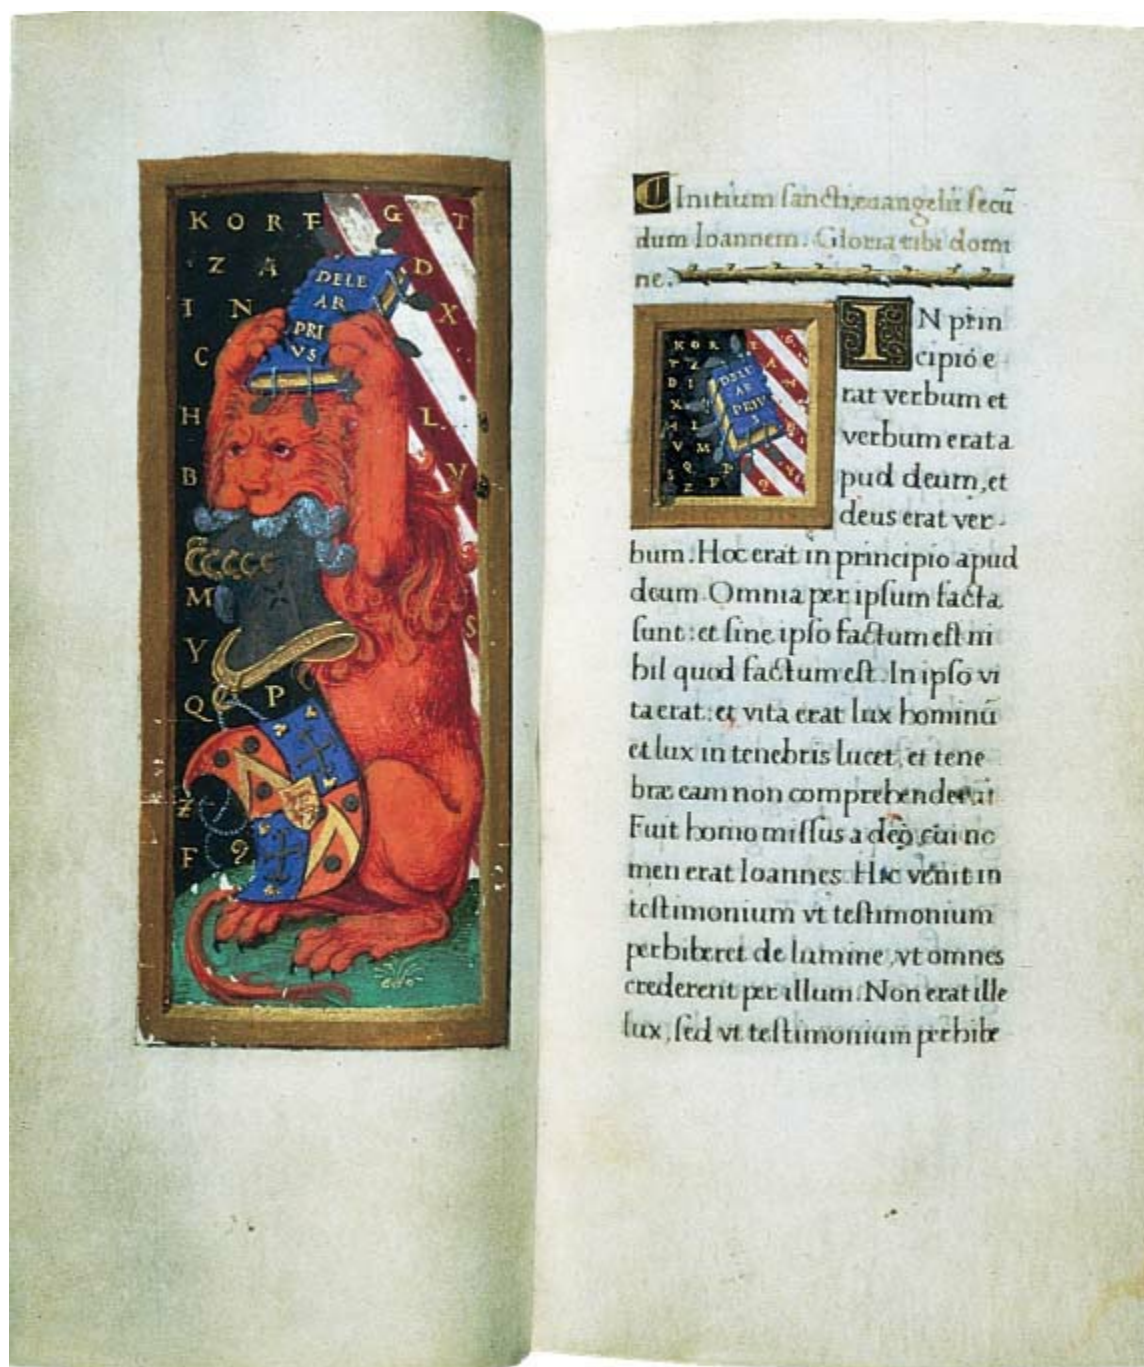 K O R F G T
Z A D
DELE
AR
PRI
VS
I N X
C
H L.
B V
M
Y S
P
Q
Z
F
Initium ſancti euangelii ſecū
dum Ioannem. Gloria tibi domi
ne.
K O R
DELE
AR
PRIV
S
IN prin
cipio e
rat verbum et
verbum erat a
pud deum, et
deus erat ver-
bum. Hoc erat in principio apud
deum. Omnia per ipſum facta
ſunt: et ſine ipſo factum eſt ni
hil quod factum eſt. In ipſo vi
ta erat: et vita erat lux hominū
et lux in tenebris lucet, et tene
bræ eam non comprehenderūt
Fuit homo miſſus a deo, cui no
men erat Ioannes. Hic venit in
teſtimonium vt teſtimonium
perhiberet de lumine, vt omnes
crederent per illum. Non erat ille
lux, ſed vt teſtimonium perhibe